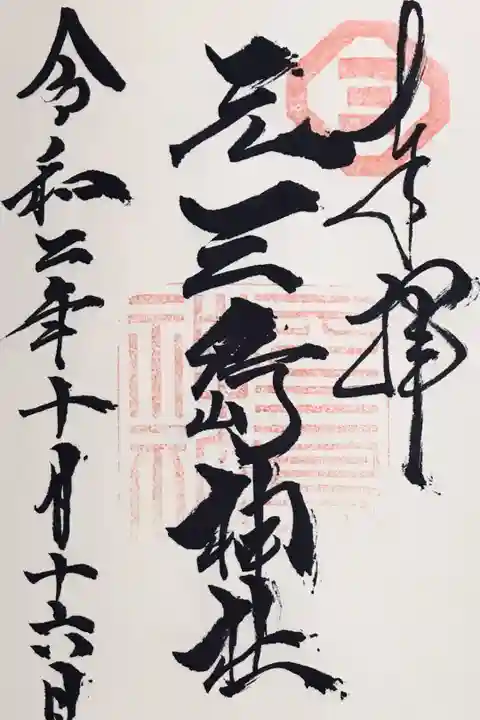 奉拝
元三島神社
令和二年十月十六日